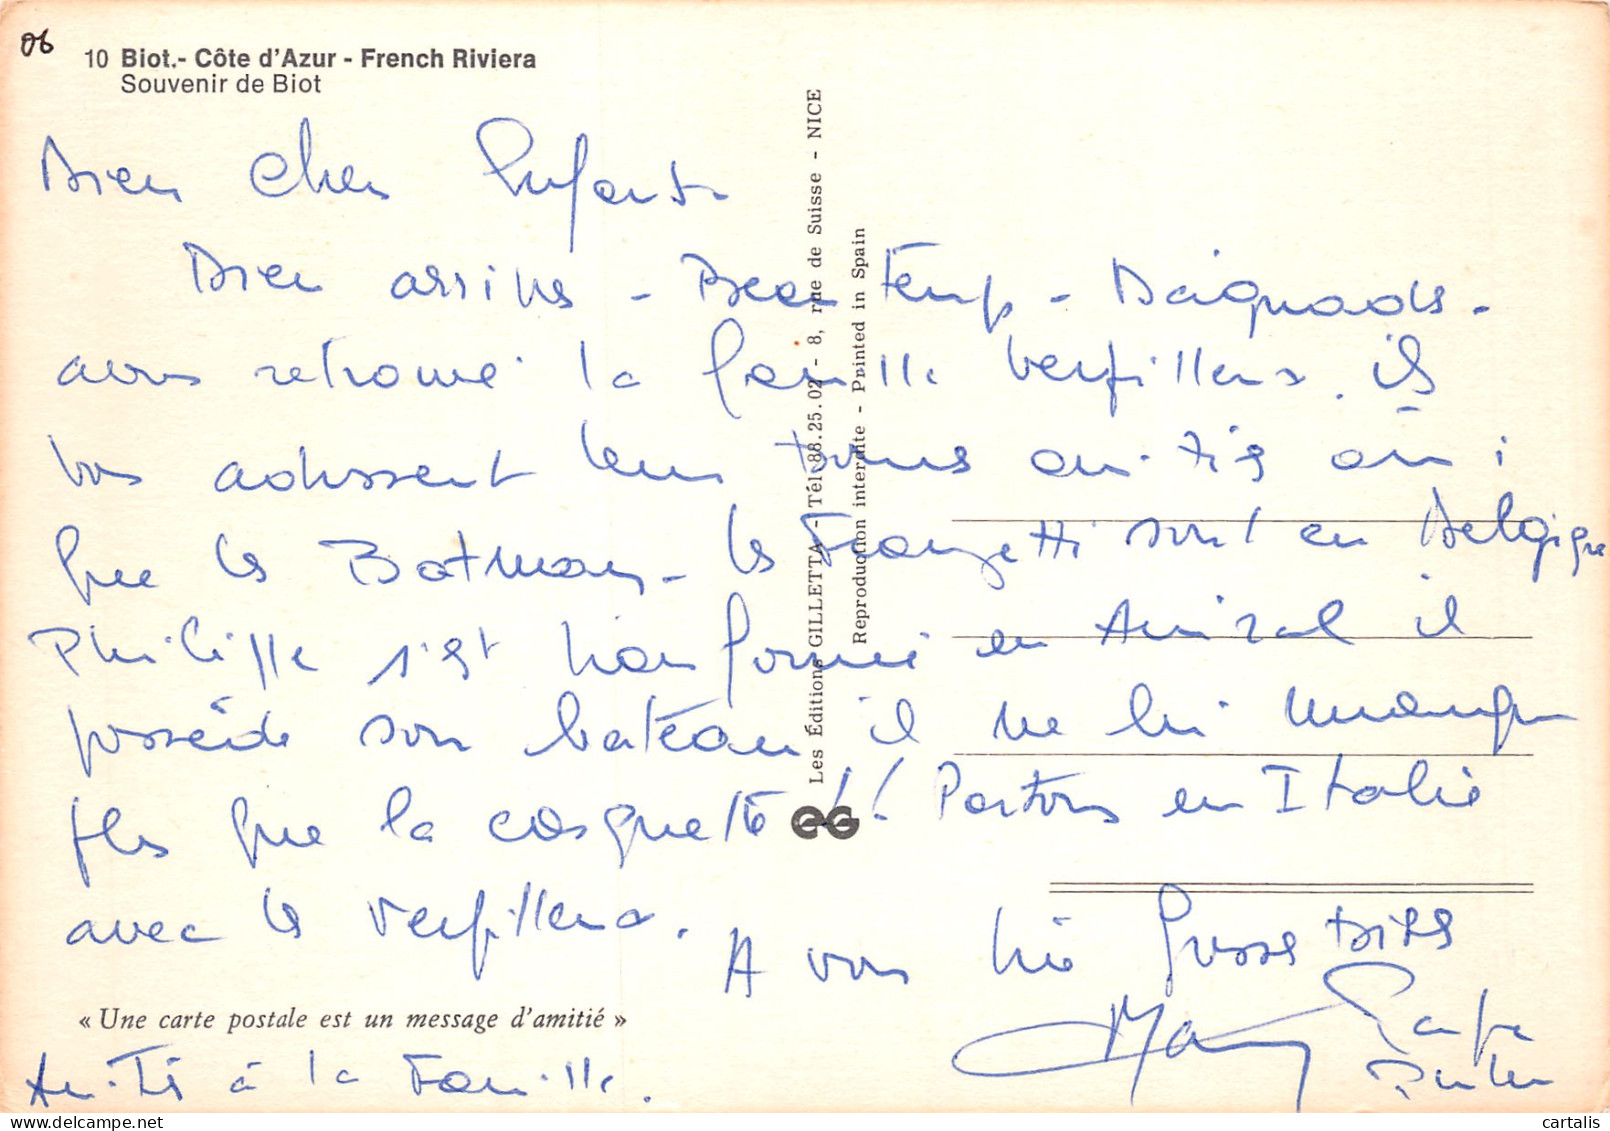 06
10 Biot.- Côte d'Azur - French Riviera
Souvenir de Biot
Bien Cher Enfants
Bien arrivés - Beau temps - Baignades -
avons retrouvé la famille Verfillers. ils
vos adressent leurs bonnes amitiés ainsi
que les Batman - les Franzetti sont en Belgique
Philippe s'est transformé en Amiral il
possède son bateau il ne lui manque
plus que la casquette !! Partons en Italie
avec les Verfillers.
A vous trie Grosses bises
Papa
Many
« Une carte postale est un message d'amitié »
Amitiés à la Famille.
Les Éditions GILLETTA - Tél. 88.25.02 - 8, rue de Suisse - NICE
Reproduction interdite - Printed in Spain
EG
cartalis